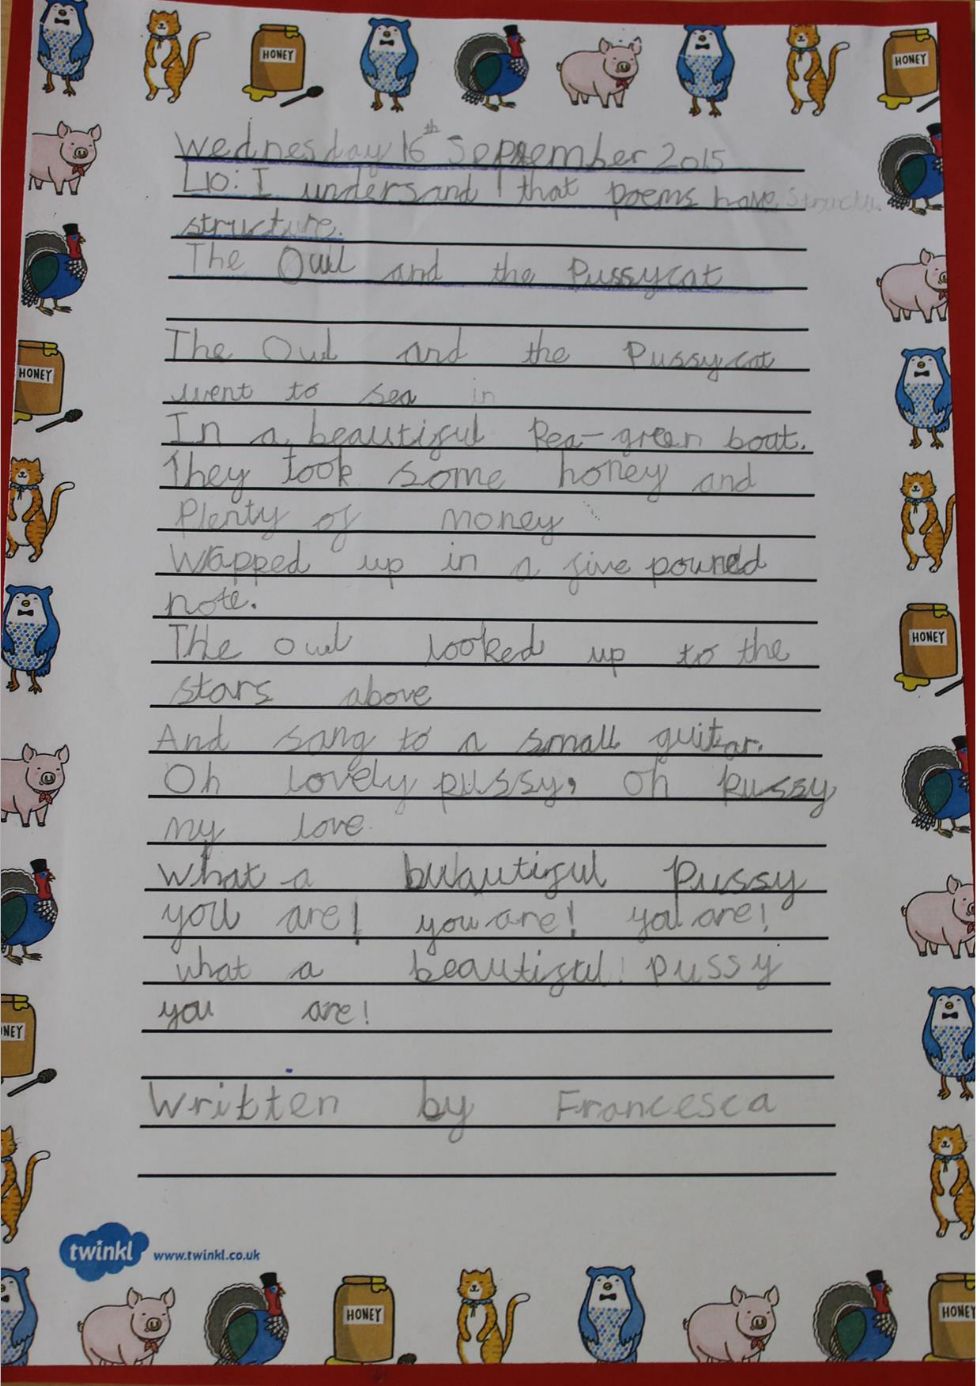 Wednesday 16th September 2015
LO: I undersand that poems have structu
structure.
The Owl and the Pussycat
The Owl and the Pussycat
went to sea in
In a beautiful Pea-green boat.
They took some honey and
Plenty of money
Wrapped up in a five pouned
note.
The owl looked up to the
stars above
And sang to a small guitar.
Oh lovely pussy, oh pussy
my love
What a buautiful pussy
you are! you are! you are!
what a beautiful! pussy
you are!
Written by Francesca
twinkl www.twinkl.co.uk
HONEY
HONEY
HONEY
HONEY
HONEY
HONEY
HONEY